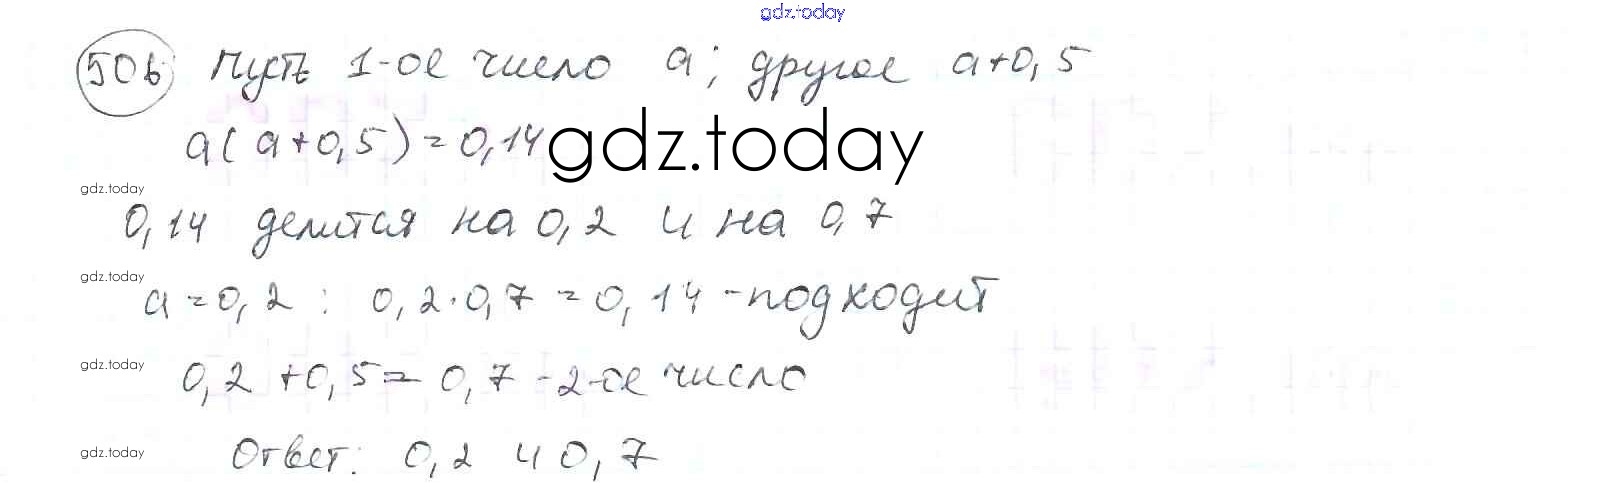 gdz.today
506 Пусть 1-ое число a; другое a+0,5
a(a+0,5)=0,14
gdz.today
gdz.today
0,14 делится на 0,2 и на 0,7
gdz.today
a=0,2: 0,2·0,7=0,14-подходит
gdz.today
0,2+0,5=0,7-2-ое число
gdz.today
Ответ: 0,2 и 0,7